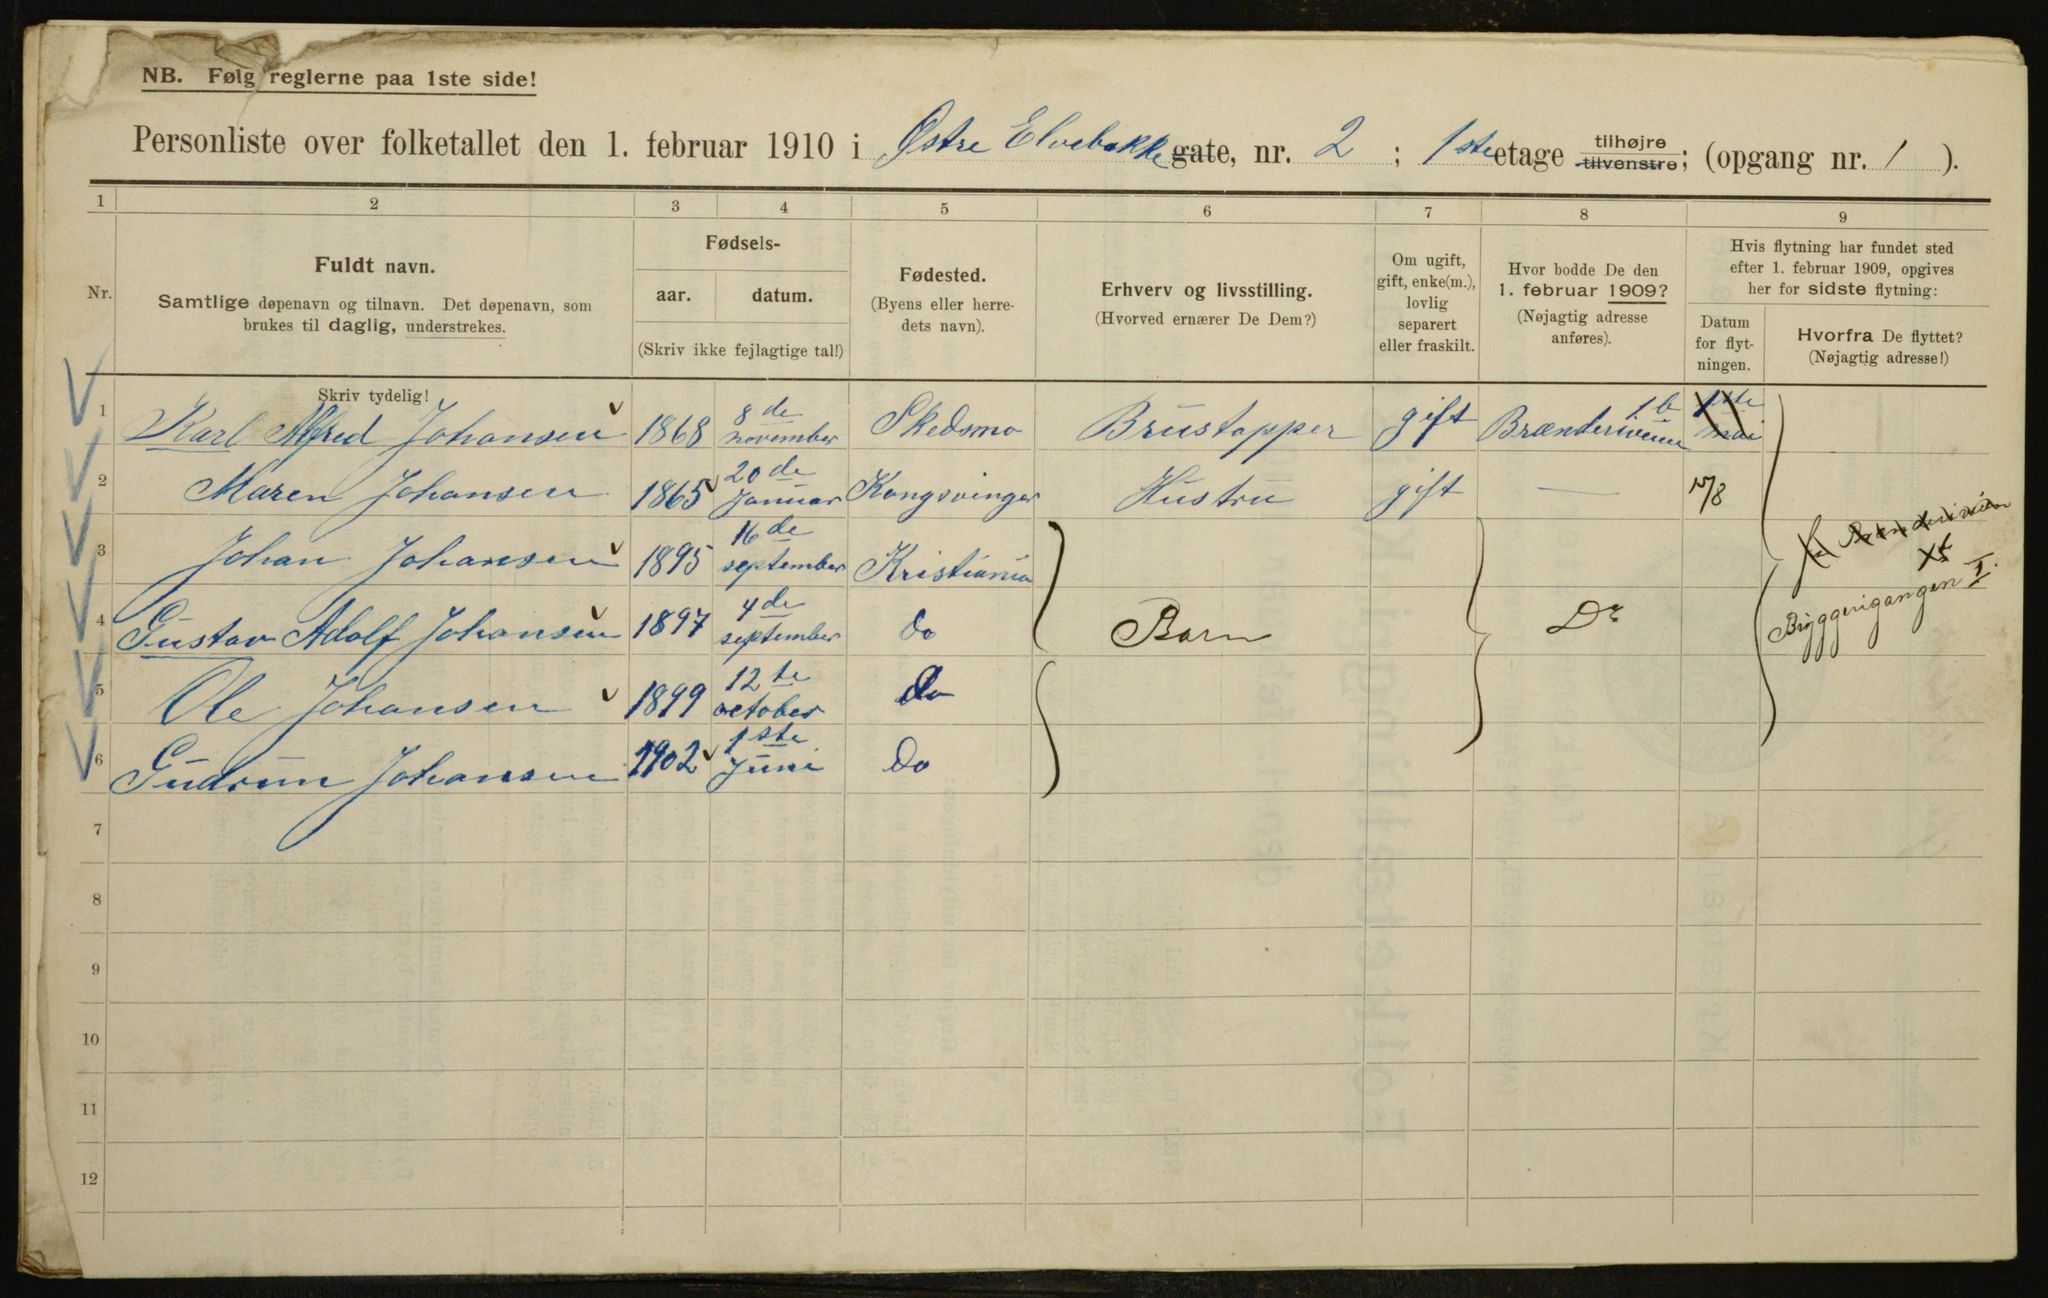 NB. Følg reglerne paa 1ste side!
Personliste over folketallet den 1. februar 1910 i Østre Elvebakke gate, nr. 2 ; 1ste etage tilhøjre tilvenstre; (opgang nr. 1 ).
1 2 3 4 5 6 7 8 9
Nr.
Fuldt navn.
Samtlige døpenavn og tilnavn. Det døpenavn, som
brukes til daglig, understrekes.
Skriv tydelig!
Fødsels-
aar. datum.
(Skriv ikke fejlagtige tal!)
Fødested.
(Byens eller herre-
dets navn).
Erhverv og livsstilling.
(Hvorved ernærer De Dem?)
Om ugift,
gift, enke(m.),
lovlig
separert
eller fraskilt.
Hvor bodde De den
1. februar 1909?
(Nøjagtig adresse
anføres).
Hvis flytning har fundet sted
efter 1. februar 1909, opgives
her for sidste flytning:
Datum
for flyt-
ningen.
Hvorfra De flyttet?
(Nøjagtig adresse!)
1 Karl Alfred Johansen 1868 8de november Skedsmo Brustapper gift 1ste mai
2 Maren Johansen 1865 20de Januar Kongsvinger Hustru gift —
3 Johan Johansen 1895 16de september Kristiania
4 Gustav Adolf Johansen 1897 4de september do Barn Do Bryggerigangen I.
5 Ole Johansen 1899 12te october do
6 Gudrun Johansen 1902 1ste Juni do
7
8
9
10
11
12